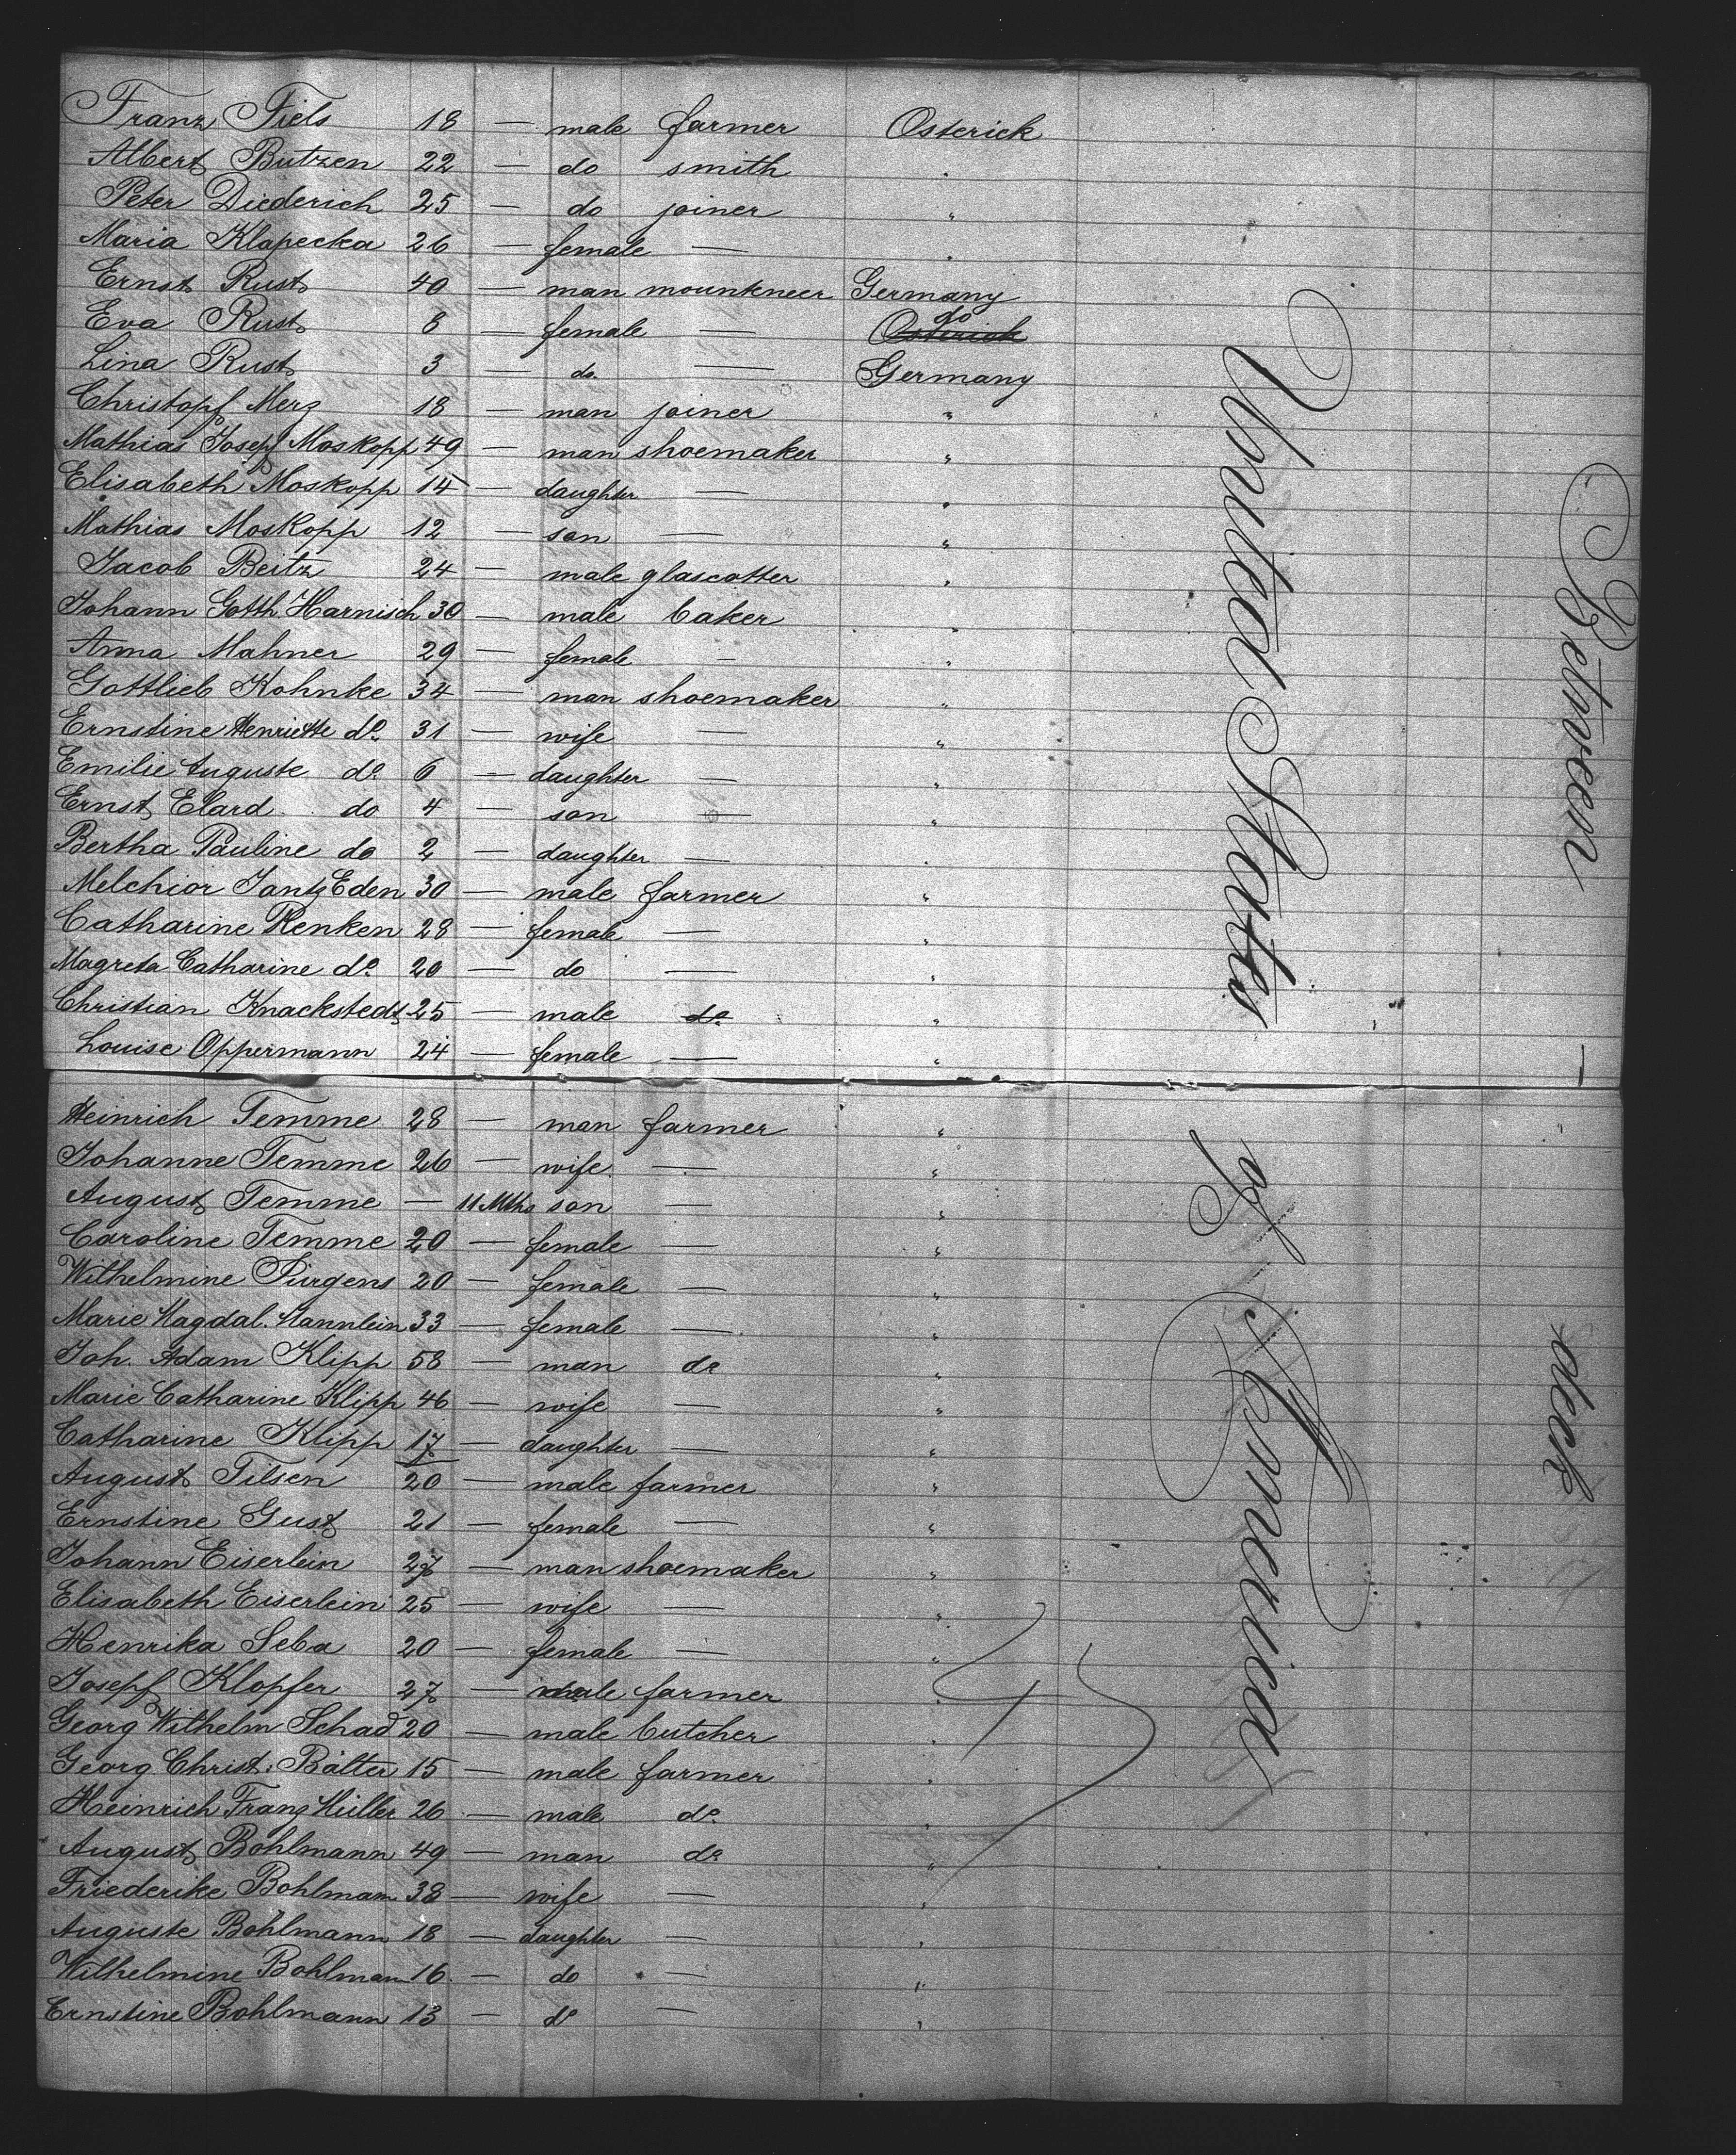 Franz Fiels 18 — male farmer Osterick
Albert Butzen 22 — do smith "
Peter Diederich 25 — do joiner "
Maria Klapecka 26 — female — "
Ernst Rust 40 — man mountneer Germany
Eva Rust 8 — female — Osterick do
Lina Rust 3 — do. — Germany
Christopf Merz 18 — man joiner "
Mathias Josepf Moskopp 49 — man shoemaker "
Elisabeth Moskopp 14 — daughter — "
Mathias Moskopp 12 — son — "
Jacob Beitz 24 — male glascotter "
Johann Gotth. Harnisch 30 — male baker "
Anna Mahner 29 — female — "
Gottlieb Kohnke 34 — man shoemaker "
Ernstine Henriette do. 31 — wife — "
Emilie Auguste do. 6 — daughter — "
Ernst Elard do 4 — son — "
Bertha Pauline do 2 — daughter — "
Melchior Jantz Eden 30 — male farmer "
Catharine Renken 28 — female — "
Magreta Catharine do. 20 — do — "
Christian Knackstedt 25 — male do "
Louise Oppermann 24 — female — "
Heinrich Temme 28 — man farmer "
Johanne Temme 26 — wife — "
August Temme — 11 Mths son — "
Caroline Temme 20 — female — "
Wilhelmine Pürgens 20 — female — "
Marie Magdal. Hannlein 33 — female — "
Joh. Adam Klipp 58 — man do "
Marie Catharine Klipp 46 — wife — "
Catharine Klipp 17 — daughter — "
August Tilsen 20 — male farmer "
Ernstine Gust 21 — female — "
Johann Eiserlein 27 — man shoemaker "
Elisabeth Eiserlein 25 — wife — "
Henrika Seba 20 — female — "
Josepf Klopfer 27 — male farmer "
Georg Wilhelm Schad 20 — male butcher "
Georg Christ. Bälter 15 — male farmer "
Heinrich Franz Müller 26 — male do. "
August Bohlmann 49 — man do "
Friederike Bohlmann 38 — wife — "
Auguste Bohlmann 18 — daughter — "
Wilhelmine Bohlmann 16 — do — "
Ernstine Bohlmann 13 — do — "
United States of America
Between deck